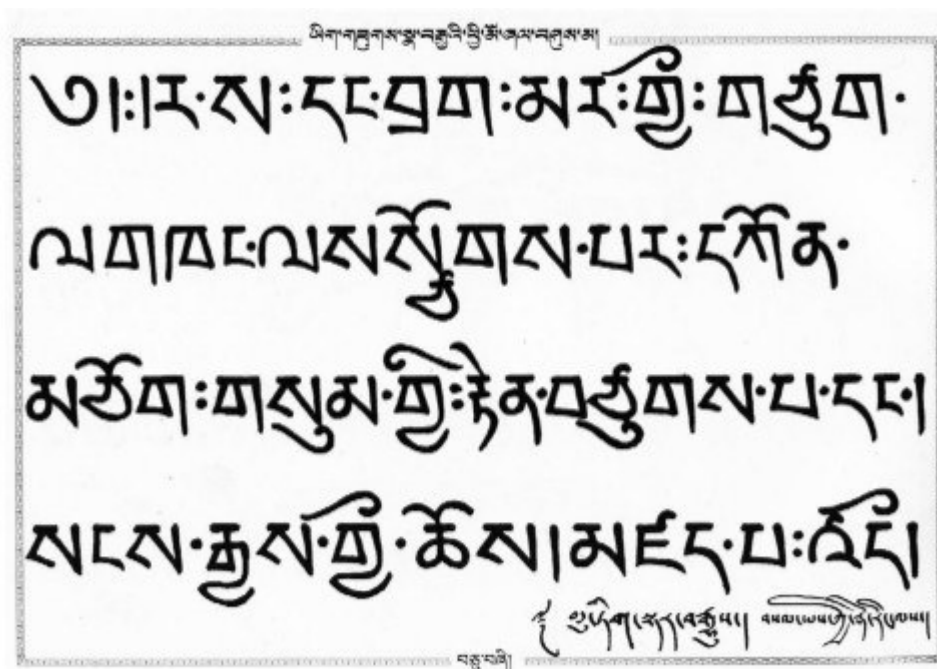 ཡིག་གཟུགས་སྣ་བརྒྱའི་ཕྱི་མོ་ཞལ་བཤུས་མ།
༄།:།ར་ས:དང་བྲག:མར:གྱྀ:གཙུག་
ལགཁང་ལསསྩོགས་པར:དཀོན་
མཅོག:གསུམ་གྱི:རྟེན་བཙུགས་པ་དང་།
སངས་རྒྱས་གྱྀ་ཆོས།མཛད་པ:འདྀ།
བཅུ་བཞི།